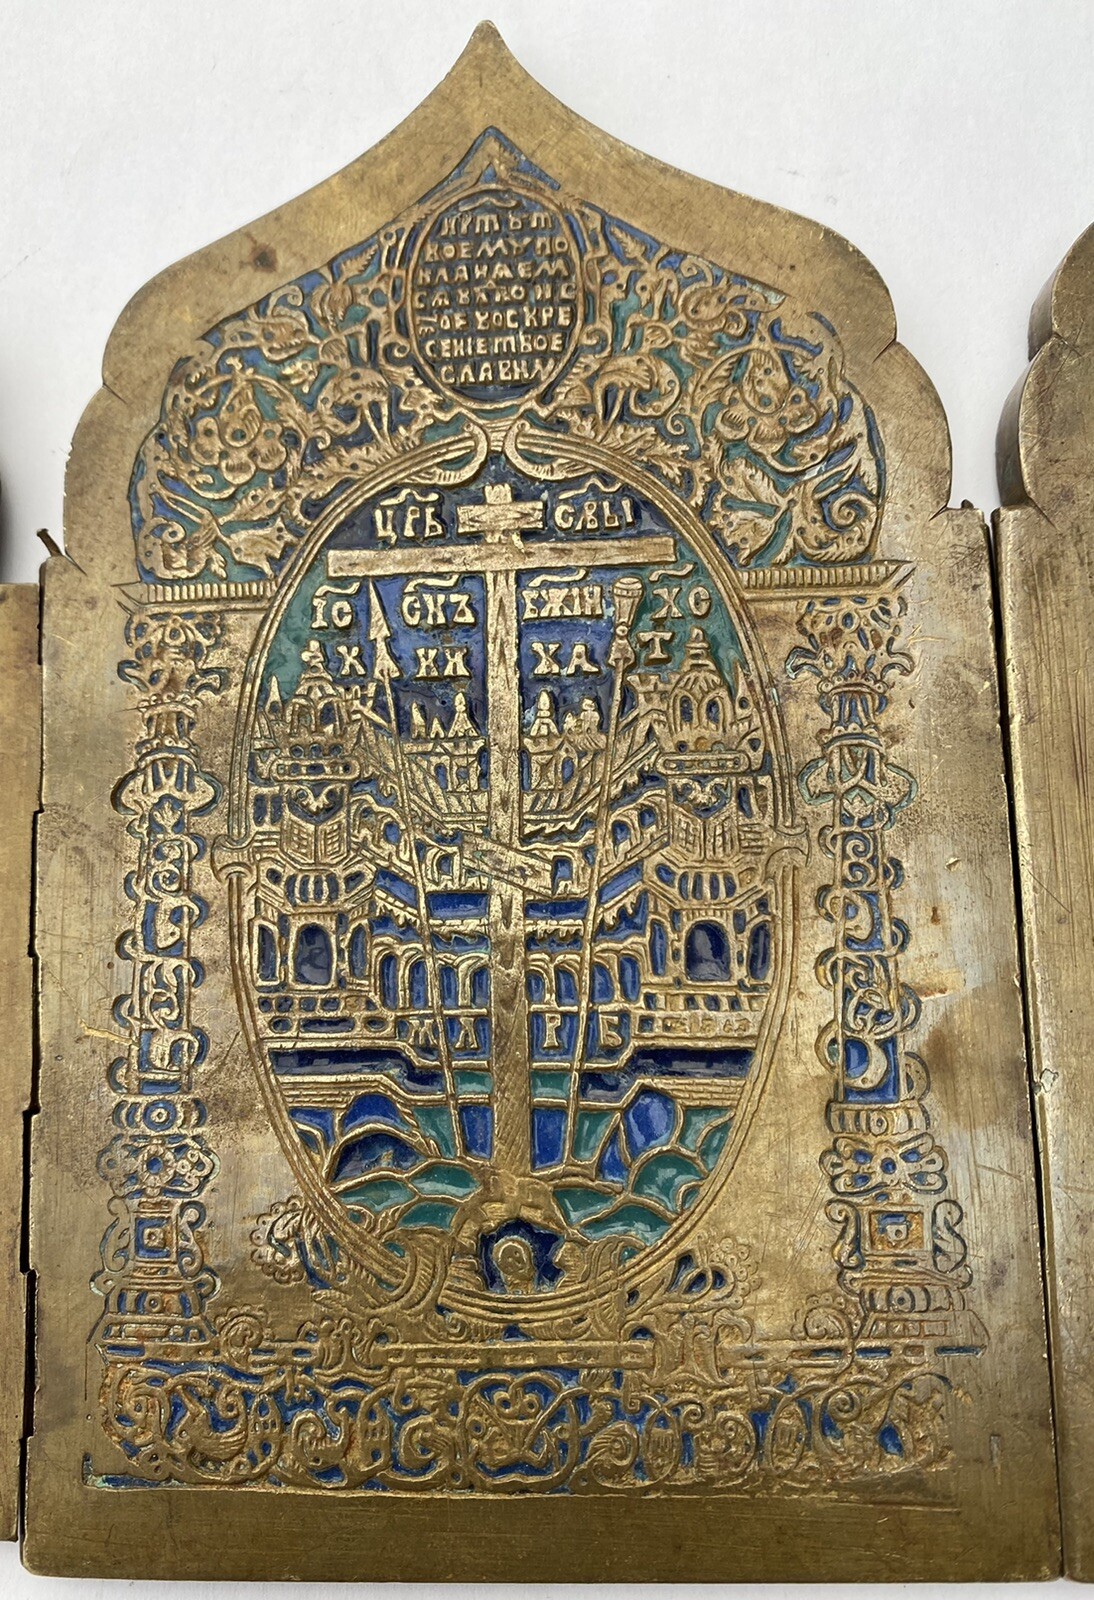 КРТѢ Т
ВОЕМУ ПО
КЛАНѦЕМ
СѦ ВЛКО И С
ТОЕ ВОСКРЕ
СЕНІЕ ТВОЕ
СЛАВИМ
ЦРЬ СЛВЫ
ІС СНЪ БЖІИ ХС
К НИ ХА Т
М Л Р Б